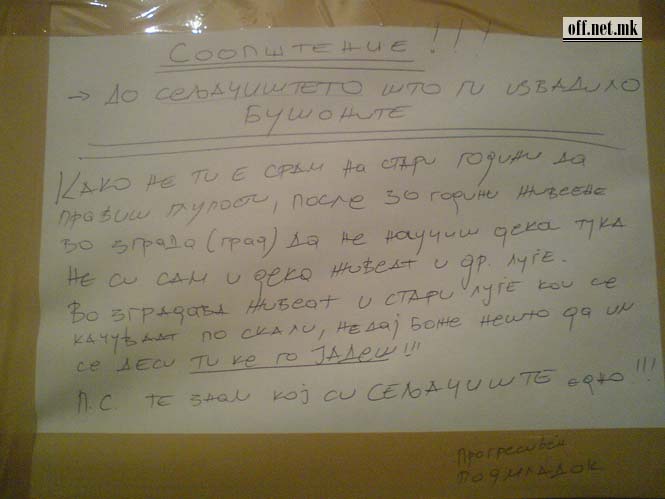 off.net.mk
СООПШТЕНИЕ!!!
→ ДО СЕЉАЧИШТЕТО ШТО ГИ ИЗВАДИЛО
БУШОНИТЕ
КАКО НЕ ТИ Е СРАМ НА СТАРИ ГОДИНИ ДА
ПРАВИШ ГЛУПОСТИ, ПОСЛЕ 30 ГОДИНИ ЖИВЕЕЊЕ
ВО ЗГРАДА (ГРАД) ДА НЕ НАУЧИШ ДЕКА ТУКА
НЕ СИ САМ И ДЕКА ЖИВЕАТ И ДР. ЛУЃЕ.
ВО ЗГРАДАВА ЖИВЕАТ И СТАРИ ЛУЃЕ КОИ СЕ
КАЧУВААТ ПО СКАЛИ, НЕДАЈ БОЖЕ НЕШТО ДА ИМ
СЕ ДЕСИ ТИ КЕ ГО ЈАДЕШ!!!
П.С. ТЕ ЗНАМ КОЈ СИ СЕЉАЧИШТЕ ЕДНО!!!
Прогресивен
ПОДМЛАДОК